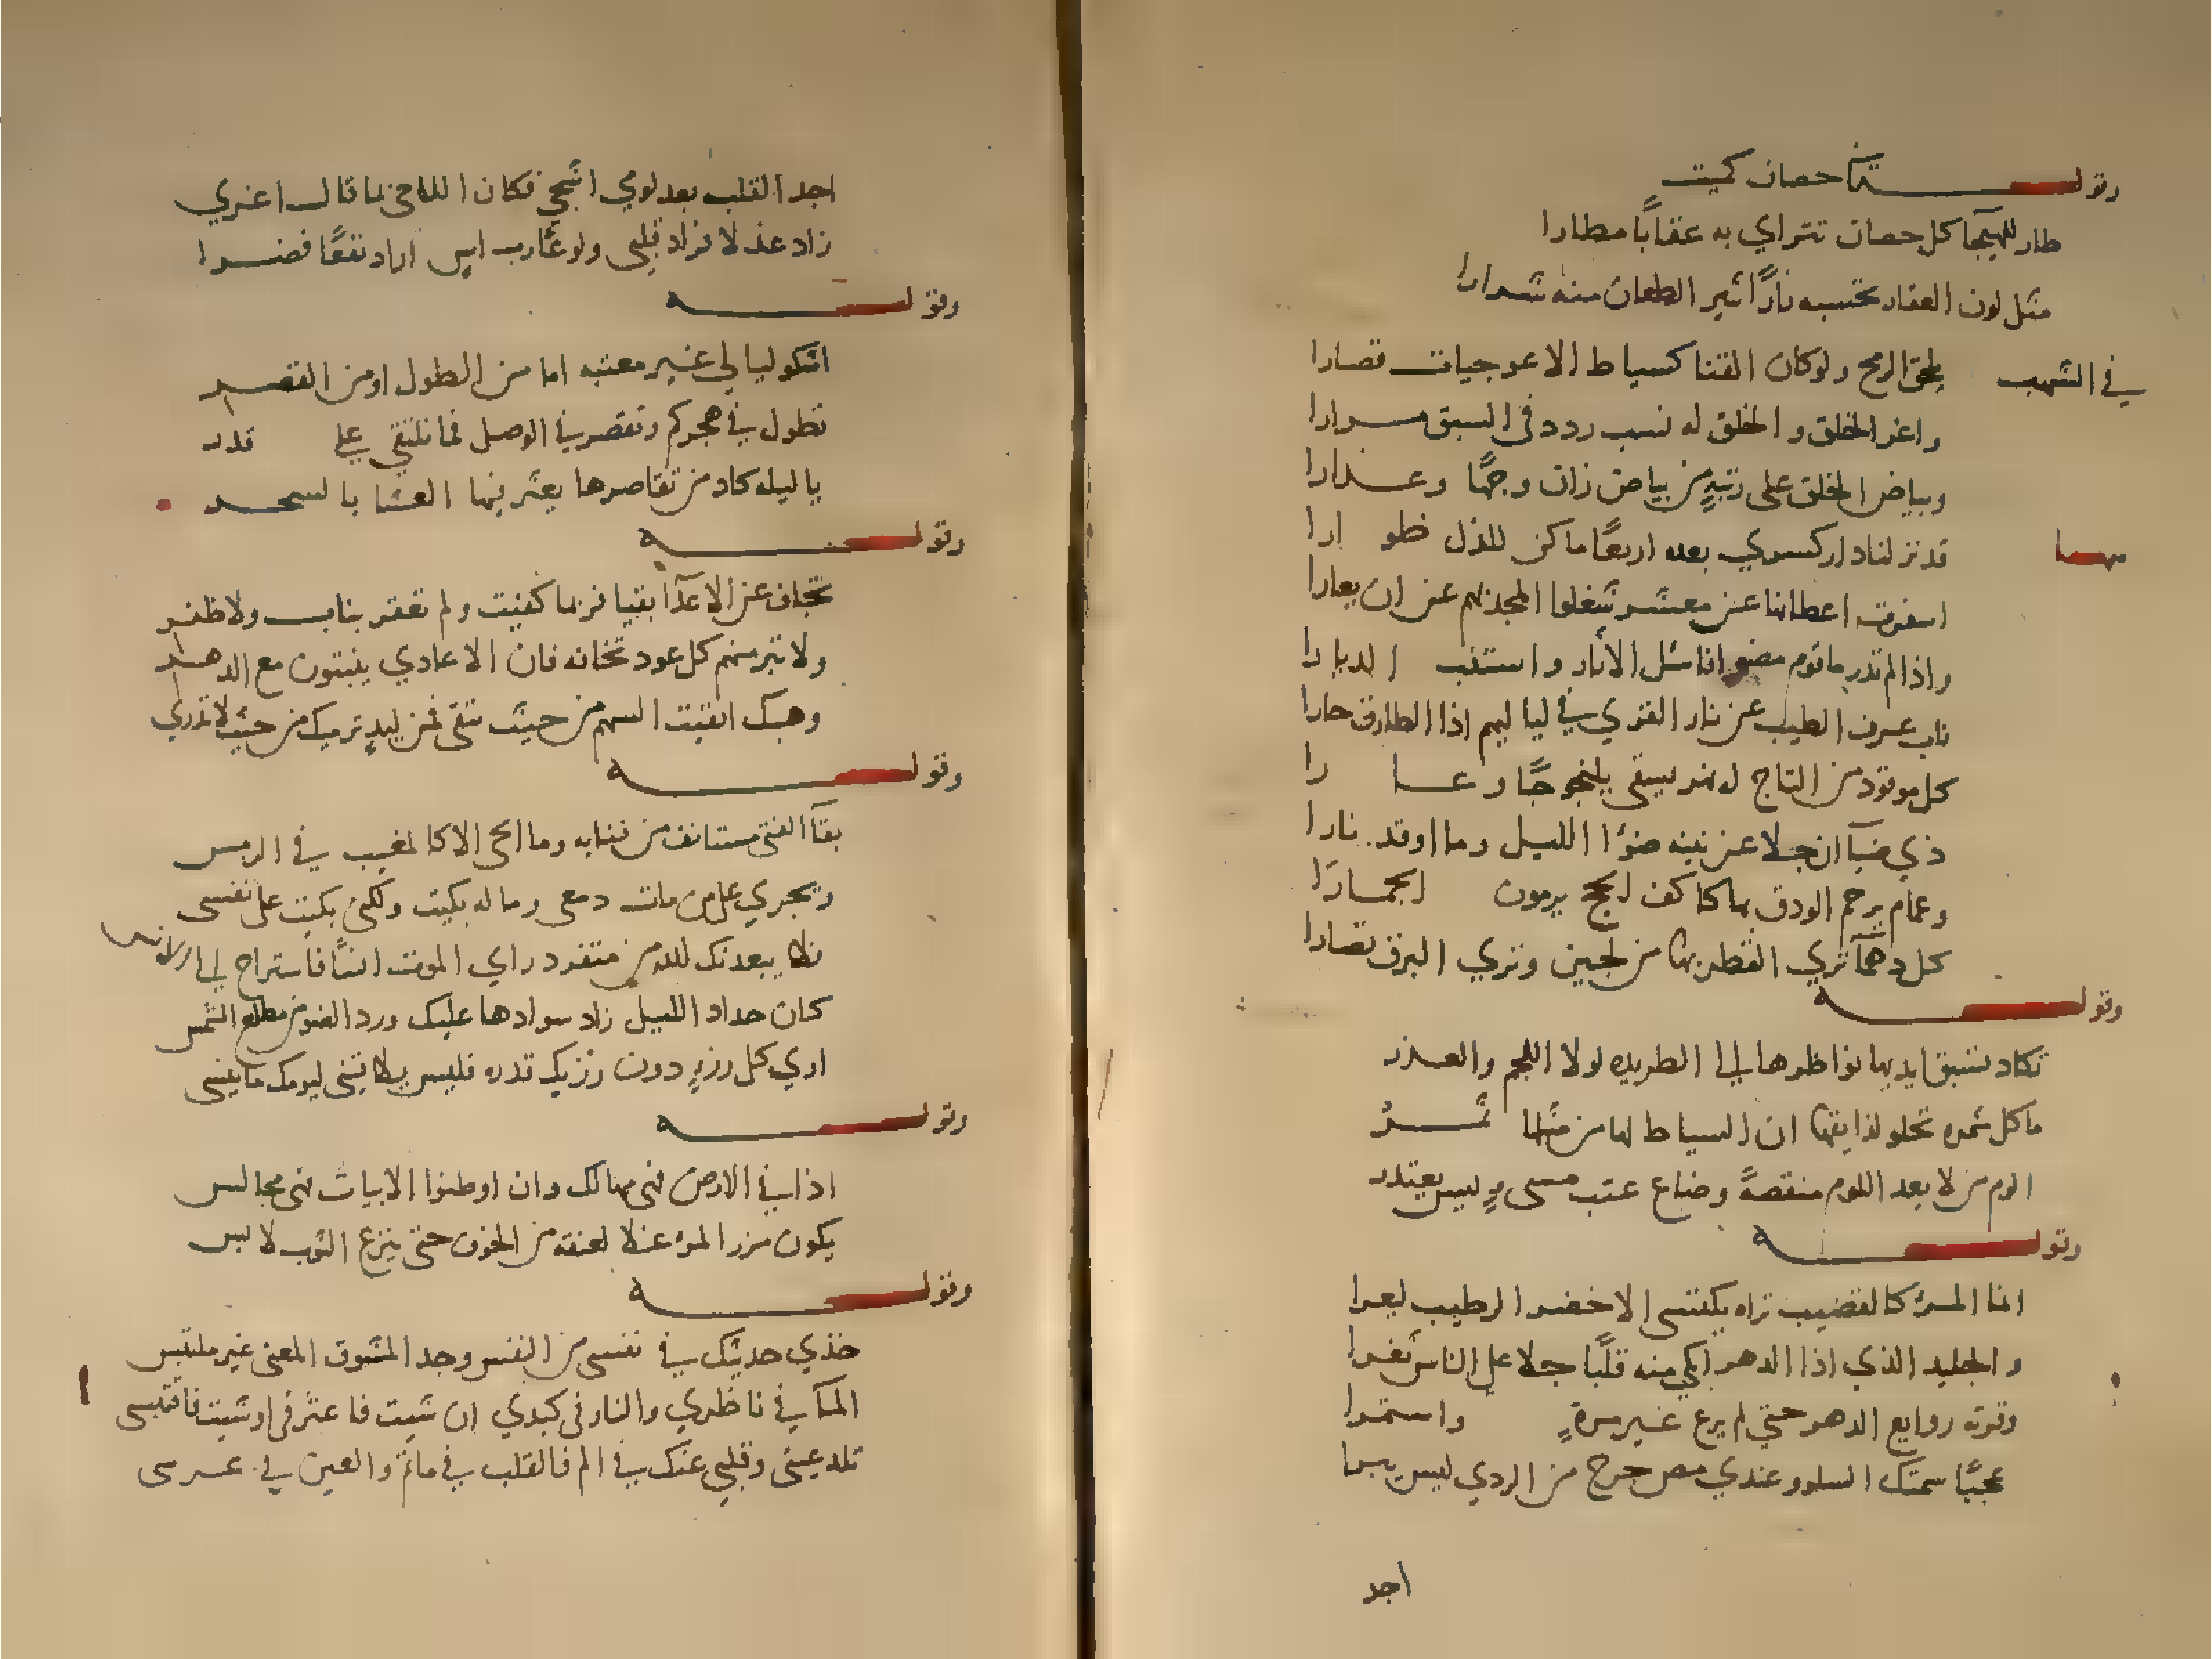 وقولـه في حصان كميت
طار للهيجا كل حصان تتراي به عقابًا مطارا
مثل لون العقار تحسبه نارًا تثير الطعان منه شرارا
في الشهب
يلحق الرمح ولو كان القنا كسياط الاعوجيات قصارا
واغر الخلق والخلق له نسب ردد في السبق مرارا
وبياض الخلق على رتبةٍ من بياض زان وجهًا وعذارا
منها
قد نزلنا دار كسري بعده اربعًا ما كن للذل ظوارا
اسفرت اعطاننا عن معشر شغلوا المجد بهم عن ان يعارا
واذا لم تدر ما قوم مضوا فاسئل الاثار واستنب الديارا
ناب عرف الطيب عن نار القري في لياليهم اذا الطارق حارا
كل موقود من التاج له يسقي يلنجوجًا وغارا
ذي ضيآ ان جلا عن نيته ضوا الليل وما اوقد نارا
وغمام يرجم الودق بها كاكف الحج يرمون الجمارا
كل دهمآ تري القطر بها من لجين وتري البرق نضارا
وقولـه
تكاد تسبق ايديها نواظرها الي الطريده لولا اللجم والعذر
ما كل ثمره تحلو لذايقها ان السياط لها من مثلها ثمر
الوم من لا يعد اللوم منقصةً وضاع عتب مسيء ليس يعتذر
وقولـه
انما المرء كالقضيب تراه يكتسي الاخضر الرطيب ليعرا
والجليد الذي اذا الدهر ابكي منه قلبًا جلا علي الناس ثغرا
وقرته روايع الدهر حتي لم يرع غير مرةٍ واستمرا
عجبًا سمتك السلو وعندي مض جرح من الردي ليس يبرا
اجد
اجد القلب بعد لومي اشجي فكان اللاحي بما قال اغري
زاد عذلا فزاد قلبي ولوعًا رب اس اراد نفعًا فضرا
وقولـه
اشكو ليالي غير معتبه اما من الطول او من القصر
تطول في هجركم وتقصر في الوصل فما نلتقي علي قدر
يا ليله كاد من تقاصرها يعثر فيها العشا بالسحر
وقولـه
تجاف عن الاعدآ بقيا فربما كفيت ولم تعقر بناب ولا ظفر
ولا تبر منهم كل عود تخافه فان الاعادي ينبتون مع الدهر
وهبك اتقيت السهم من حيث تتقي فمن ليدٍ ترميك من حيث لا تدري
وقولـه
بقآ الفتي مستانف من فنايه وما الحي الا كالمغيب في الرمس
وتجري علي من مات دمعي وما له بكيت ولكني بكيت علي نفسي
فلا يبعدنك الله من متفرد راي الموت انسًا فاستراح الي الانس
كان حداد الليل زاد سوادها عليك ورد الضو من مطلع الشمس
اري كل رزءٍ دون رزيك قدره فليس يلاقيني ليومك ما ينسي
وقولـه
اذا في الارض فهي مهالك وان اوطنوا الابيات فهي مجالس
يكون مزر المرء غلا لعنقه من الخوف حتي ينزع الثوب لابس
وقولـه
خذي حديثك في نفسي من النفس وجد المشوق المعني غير ملتبس
المآ في ناظري والنار في كبدي ان شيت فاغترفي او شيت فاقتبسي
تلذ عيني وقلبي عنك في الم فالقلب في ماتم والعين في عرس